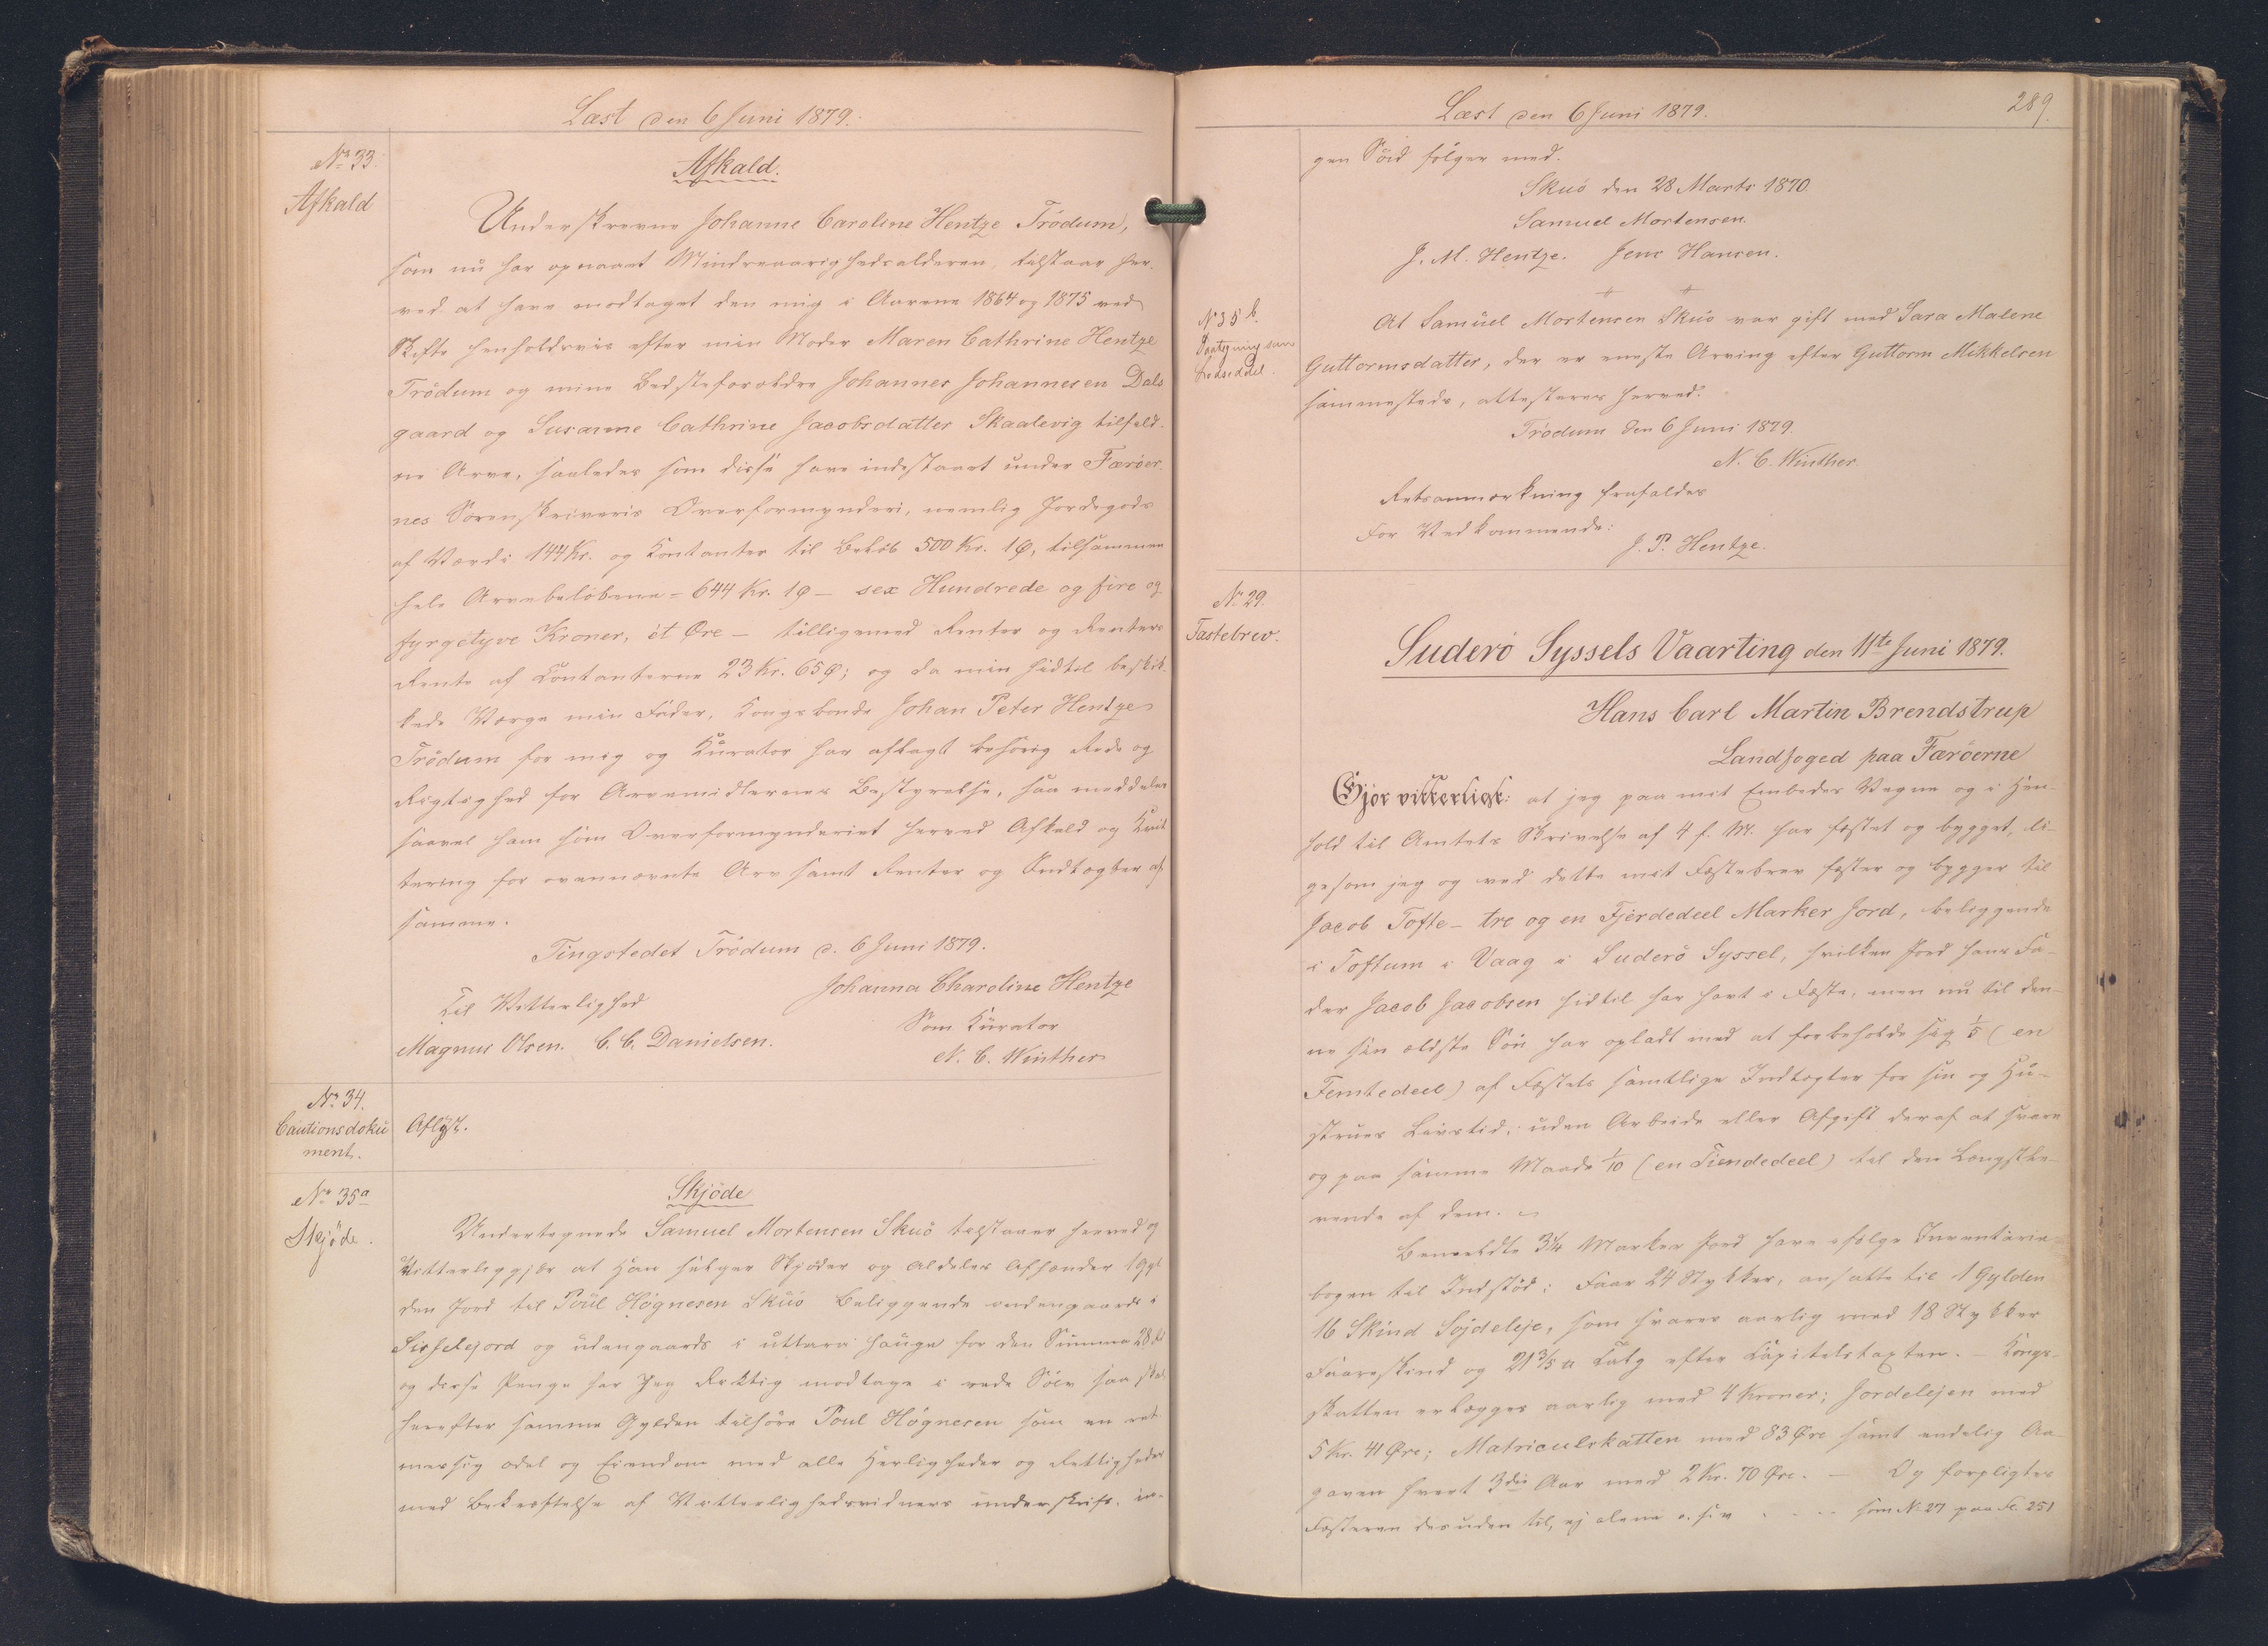 Læst den 6 Juni 1879.
No 33.
Afkald
Afkald.
Underskrevne Johanne Caroline Hentze Trödum,
som nu har opnaaet Mindreaarighedsalderen, tilstaar her-
ved at have modtaget den mig i Aarene 1864 og 1875 ved
Skifte henholdsvis efter min Moder Maren Cathrine Hentze
Trödum og mine Bedsteforældre Johannes Johannesen Dals
gaard og Susanne Cathrine Jacobsdatter Skaalevig tilfald-
ne Arve, saaledes som disse have indestaaet under Færöer-
nes Sorenskriveris Overformynderi, nemlig Jordegods
af Værdi 144 Kr. og Contanter til Beløb 500 Kr. 1 Ø, tilsammen
hele Arvebeløbene = 644 Kr. 1 Ø — sex Hundrede og fire og
fyrgetyve Kroner, ét Øre — tilligemed Renter og Renters
Rente af Contanterne 23 Kr. 65 Ø; og da min hidtil beskik-
kede Værge min Fader, Kongsbonde Johan Peter Hentze
Trödum for mig og Kurator har aflagt behørig Rede og
Rigtighed for Arvemidlernes Bestyrelse, saa meddeles
saavel ham som Overformynderiet herved Afkald og Kvit
tering for ovennævnte Arv samt Renter og Indtægter af
samme.
Tingstedet Trödum d. 6 Juni 1879.
Johanna Charoline Hentze
Til Vitterlighed
Som Kurator
Magnus Olsen. C. C. Danielsen.
N. C. Winther
No 34.
Cautionsdoku
ment.
Aflyst.
No 35a
Skjöde.
Skjöde
Undertegnede Samuel Mortensen Skuö tilstaaer herved og
Vitterliggjör at Han sælger Skjöder og aldeles Afhænder 1 Gyl
den Jord til Poül Högnesen Skuö beliggende indengaards i
og udengaards i uttara hauge for den Summa 28
og disse Penge har Jeg Rektig modtage i rede Sölv saa skal
herefter samme Gylden tilhöre Poul Högnesen som en ret-
messig odel og Eiendom med alle Herligheder og Rettigheder
med Bekræftelse af Vitterlighedsvidners underskrift. in-
Læst den 6 Juni 1879.
289.
gen Söid følger med.
Skuö den 28 Marts 1870.
Samuel Mortensen.
J. M. Hentze. Jens Hansen.
No 35 b.
At Samüel Mortensen Skuö var gift med Sara Malene
Guttormsdatter, der er eneste Arving efter Guttorm Mikkelsen
sammesteds, attesteres herved.
Trödum den 6 Juni 1879.
N. C. Winther.
Retsanmærkning frafaldes
For Vedkommende:
J. P. Hentze.
No 29.
Fæstebrev.
Suderö Syssels Vaarting den 11te Juni 1879.
Hans Carl Martin Brendstrup
Landfoged paa Færöerne
Gjör vitterligt: at jeg paa mit Embedes Vegne og i Hen-
hold til Amtets Skrivelse af 4 f. M. har fæstet og bygget, li-
gesom jeg og ved dette mit Fæstebrev fæster og bygger til
Jacob Tofte — tre og en Fjerdedeel Marker Jord, beliggende
i Toftum i Vaag i Suderö Syssel, hvilken Jord hans Fa-
der Jacob Jacobsen hidtil har havt i Fæste, men nu til den-
ne sin ældste Sön har opladt med at forbeholde sig 1/5 (en
Femtedeel) af Fæstets samtlige Indtægter for sin og Hu-
strues Livstid, uden Arbeide eller Afgift deraf at svare
og paa samme Maade 1/10 (en Tiendedeel) til den Længstle-
vende af dem.
Bemeldte 3 1/4 Marker Jord have ifölge Inventarie-
bogen til Indstöd: Faar 24 Stykker, ansatte til 1 Gylden
16 Skind Söjdeleje, som svarer aarlig med 18 Stykker
Faareskind og 21 3/5 ℔ Talg efter Capitelstaxten. — Kongs-
skatten erlægges aarlig med 4 Kroner; Jordelejen med
5 Kr. 41 Øre; Matriculskatten med 83 Øre samt endelig Aa-
gaven hvert 3die Aar med 2 Kr. 70 Øre. — Og forpligtes
Fæsteren desuden til, ej alene o. s. v. . . . . som No 27 paa Fo. 251